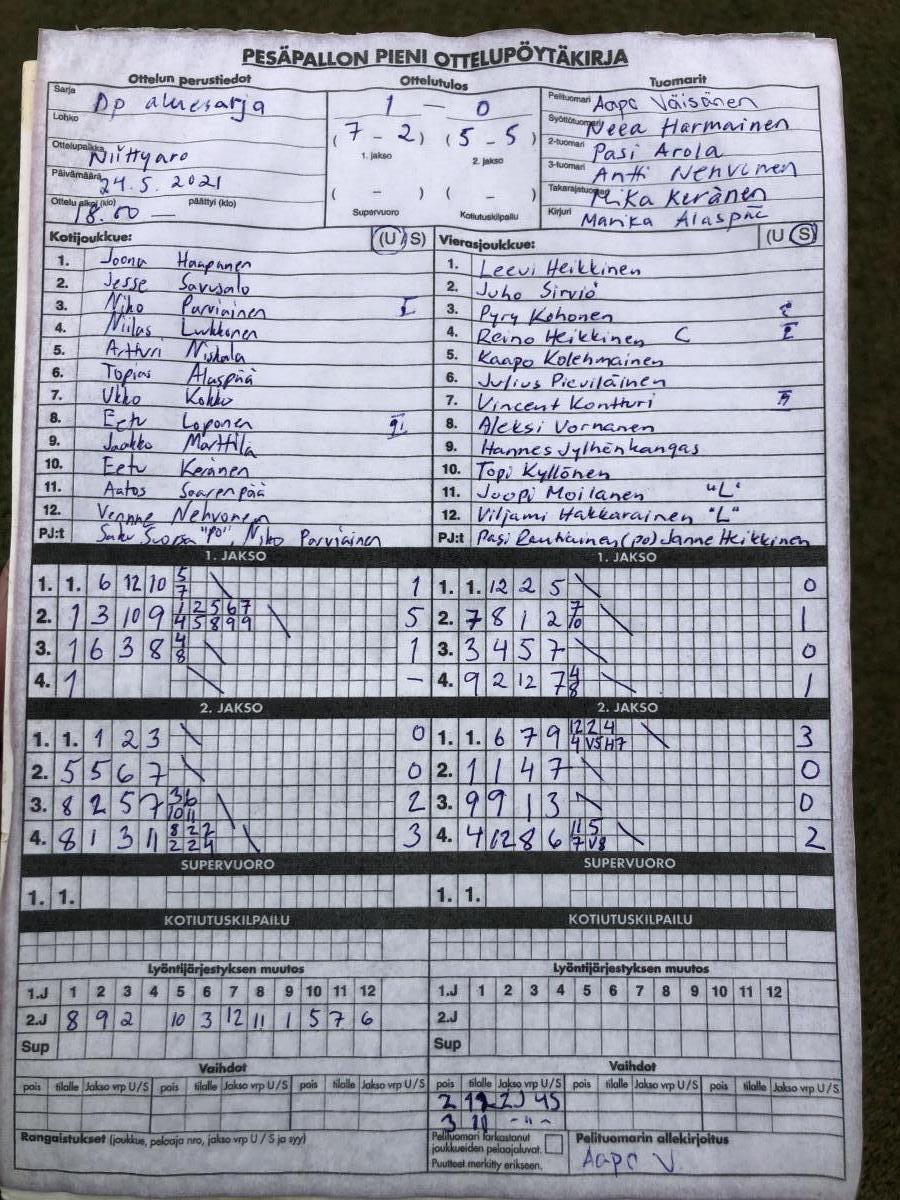 PESÄPALLON PIENI OTTELUPÖYTÄKIRJA
Ottelun perustiedot
Sarja Dp aluesarja
Lohko
Ottelupaikka Niittyaro
Päivämäärä 24.5.2021
Ottelu alkoi (klo) 18.00 — päättyi (klo)
Ottelutulos
1 — 0
(7 - 2) (5 - 5)
1. jakso 2. jakso
( - ) ( - )
Supervuoro Kotiutuskilpailu
Tuomarit
Pelituomari Aapo Väisänen
Syöttötuomari Neea Harmainen
2-tuomari Pasi Arola
3-tuomari Antti Nehvonen
Takarajatuomari Mika Keränen
Kirjuri Marika Alaspää
Kotijoukkue: (U/S)
1. Joona Haapanen
2. Jesse Savusalo
3. Niko Parviainen I
4. Niilas Lukkonen
5. Artturi Niskala
6. Topias Alaspää
7. Ukko Kokko
8. Eetu Loponen
9. Jaakko Marttila
10. Eetu Keränen
11. Aatos Saarenpää
12. Nehvonen
PJ:t Saku "PO", Niko Parviainen
Vierasjoukkue: (U/S)
1. Leevi Heikkinen
2. Juho Sirviö
3. Pyry Kohonen
4. Reino Heikkinen C I
5. Kaapo Kolehmainen
6. Julius Pieviläinen
7. Vincent Kontturi
8. Aleksi Vornanen
9. Hannes Jylhänkangas
10. Topi Kyllönen
11. Joopi Moilanen "L"
12. Viljami Hakkarainen "L"
PJ:t Pasi Rautiainen (po) Janne Heikkinen
1. JAKSO
1. 1. 6 12 10 5 7 1
2. 1 3 10 9 1 2 5 6 7 4 5 8 9 9 5
3. 1 6 3 8 4 8 1
4. 1 -
2. JAKSO
1. 1. 1 2 3 0
2. 5 5 6 7 0
3. 8 2 5 7 3 6 10 11 2
4. 8 1 3 11 8 2 2 2 2 4 3
SUPERVUORO
1. 1.
KOTIUTUSKILPAILU
1. JAKSO
1. 1. 12 2 5 0
2. 7 8 1 2 7 10 1
3. 3 4 5 7 0
4. 9 2 12 7 4 8 1
2. JAKSO
1. 1. 6 7 9 12 2 4 4 V5 H7 3
2. 1 1 4 7 0
3. 9 9 1 3 0
4. 4 12 8 6 11 5 7 V8 2
SUPERVUORO
1. 1.
KOTIUTUSKILPAILU
Lyöntijärjestyksen muutos
1.J 1 2 3 4 5 6 7 8 9 10 11 12
2.J 8 9 2 10 3 12 11 1 5 7 6
Sup
Vaihdot
pois tilalle Jakso vrp U/S pois tilalle Jakso vrp U/S pois tilalle Jakso vrp U/S
Rangaistukset (joukkue, pelaaja nro, jakso vrp U / S ja syy)
Lyöntijärjestyksen muutos
1.J 1 2 3 4 5 6 7 8 9 10 11 12
2.J
Sup
Vaihdot
pois tilalle Jakso vrp U/S pois tilalle Jakso vrp U/S pois tilalle Jakso vrp U/S
2 12 2J 4S
3 11 -"-
Pelituomari tarkastanut
joukkueiden pelaajaluvat.
Puutteet merkitty erikseen.
Pelituomarin allekirjoitus
Aapo V